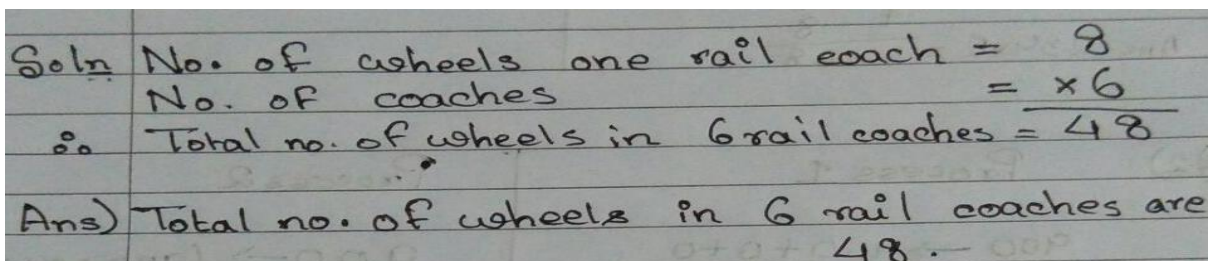 Soln No. of wheels one rail coach = 8
No. of coaches = × 6
∴ Total no. of wheels in 6 rail coaches = 48
Ans) Total no. of wheels in 6 rail coaches are
48.-